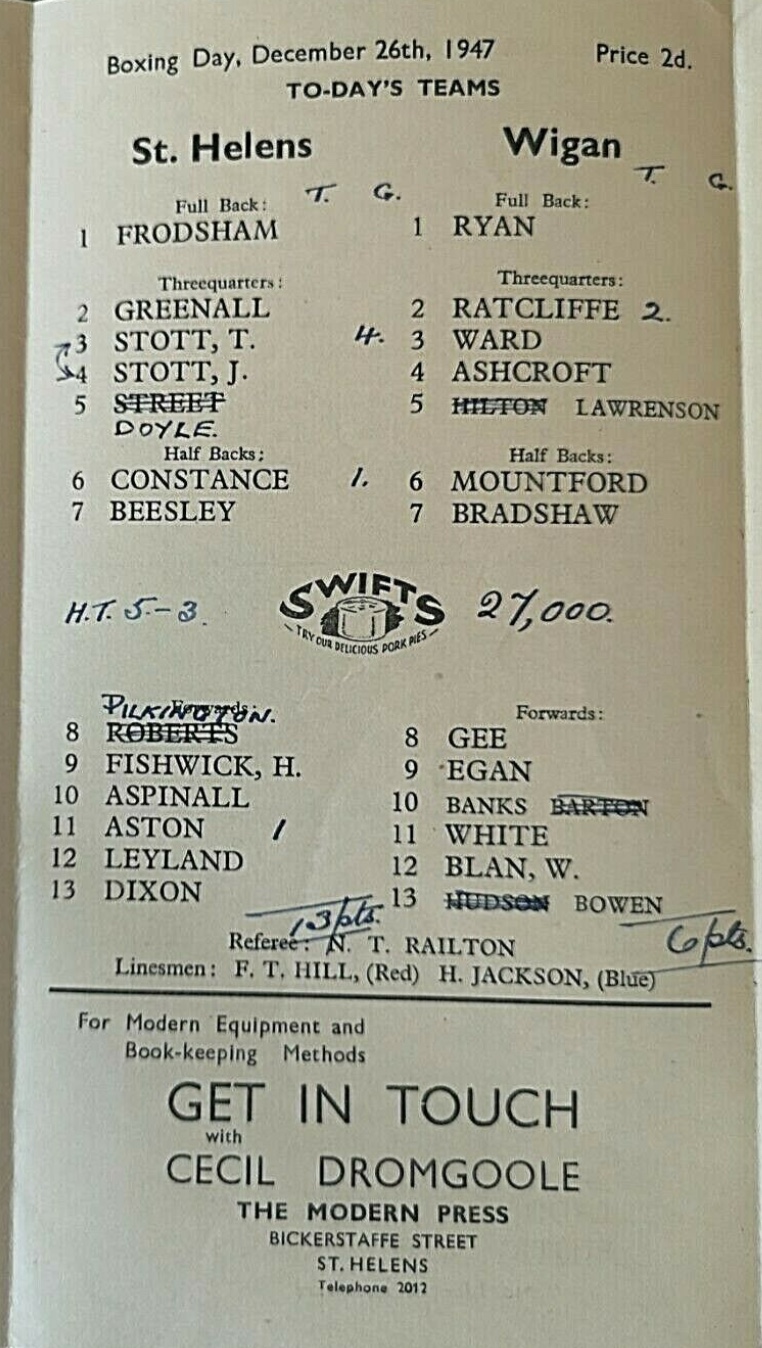 Boxing Day, December 26th, 1947 Price 2d.
TO-DAY'S TEAMS
St. Helens Wigan
T. G. T. G.
Full Back: Full Back:
1 FRODSHAM 1 RYAN
Threequarters: Threequarters:
2 GREENALL 2 RATCLIFFE 2.
3 STOTT, T. 4. 3 WARD
4 STOTT, J. 4 ASHCROFT
5 STREET 5 HILTON LAWRENSON
DOYLE.
Half Backs; Half Backs:
6 CONSTANCE 1. 6 MOUNTFORD
7 BEESLEY 7 BRADSHAW
H.T. 5-3. SWIFTS 27,000.
TRY OUR DELICIOUS PORK PIES
PILKINGTON.
Forwards: Forwards:
8 ROBERTS 8 GEE
9 FISHWICK, H. 9 EGAN
10 ASPINALL 10 BANKS BARTON
11 ASTON 1 11 WHITE
12 LEYLAND 12 BLAN, W.
13 DIXON 13 HUDSON BOWEN
13pts. 6pts.
Referee: N. T. RAILTON
Linesmen: F. T. HILL, (Red) H. JACKSON, (Blue)
For Modern Equipment and
Book-keeping Methods
GET IN TOUCH
with
CECIL DROMGOOLE
THE MODERN PRESS
BICKERSTAFFE STREET
ST. HELENS
Telephone 2012